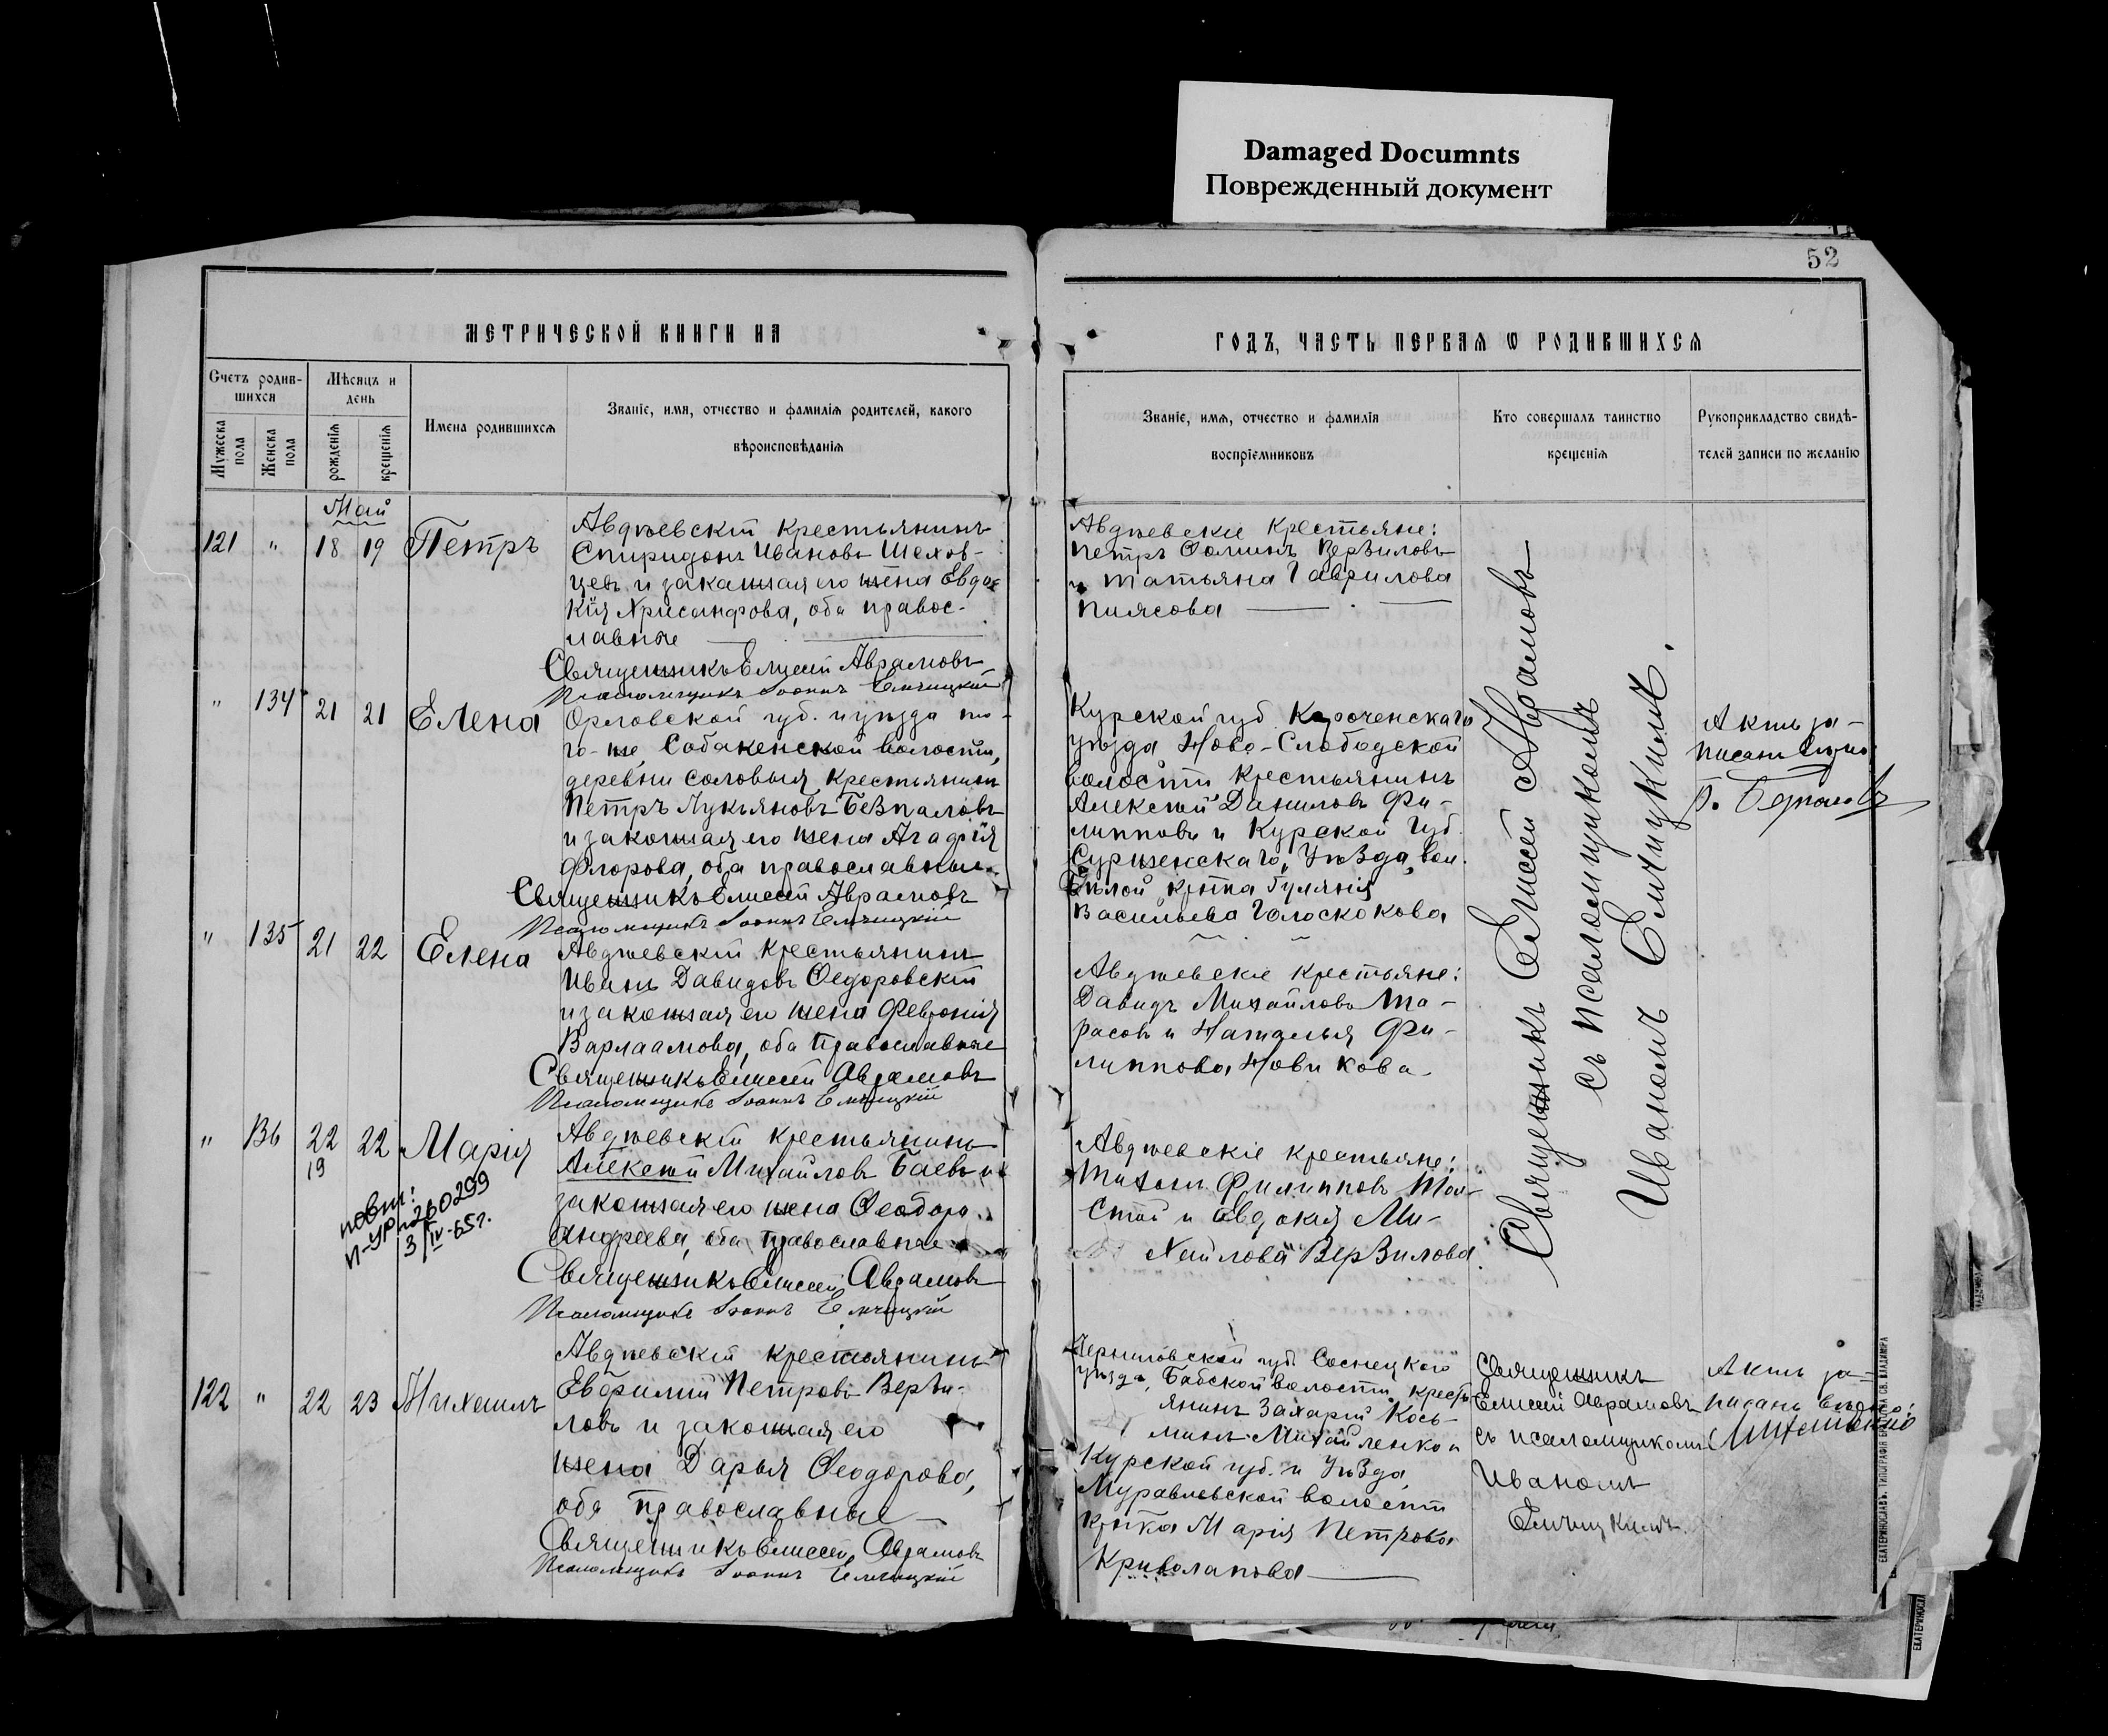 Damaged Documnts
Поврежденный документ
52
МЕТРИЧЕСКОЙ КНИГИ НА
ГОДЪ, ЧАСТЬ ПЕРВАЯ Ѡ РОДИВШИХСЯ
Счетъ родив-
шихся
Мѣсяцъ и
день
Мужеска
пола
Женска
пола
рожденія
крещенія
Имена родившихся
Званіе, имя, отчество и фамилія родителей, какого
вѣроисповѣданія
Званіе, имя, отчество и фамилія
воспріемниковъ
Кто совершалъ таинство
крещенія
Рукоприкладство свидѣ-
телей записи по желанію
Май
121 " 18 19 Петръ
Авдѣевскій крестьянинъ
Спиридонъ Ивановъ Шехов-
цев и законная его жена Евдо-
кія Хрисанфова, оба правос-
лавные
Священникъ Елисей Аврамовъ
Псаломщикъ Іоаннъ Елчицкій
Авдѣевскіе крестьяне:
Петръ Ѳоминъ Верзиловъ
и Татьяна Гаврилова
Пилсова
" 134 21 21 Елена
Орловской губ. и уѣзда то-
го-же, Собакенской волости,
деревни Соловья крестьянинъ
Петръ Лукьяновъ Безпаловъ
и законная его жена Агафія
Флорова, оба православные
Священникъ Елисей Аврамовъ
Псаломщикъ Іоаннъ Елчицкій
Курской губ. Короченскаго
уѣзда Ново-Слободской
волости крестьянинъ
Алексѣй Даниловъ Фи-
липповъ и Курской Губ.
Уѣзда, вол.
Бѣлой кр-тка
Васильева Голоскокова
Актъ за-
писанъ
" 135 21 22 Елена
Авдѣевскій крестьянинъ
Иванъ Давидовъ Ѳедоровскій
и законная его жена Феврония
Варлаамова, оба православные
Священникъ Елисей Аврамовъ
Псаломщикъ Іоаннъ Елчицкій
Авдѣевскіе крестьяне:
Давидъ Михайловъ Та-
расовъ и Наталья Фи-
липпова Новикова
" 136 22 22 Марія
19
повт:
260299
3/IV-65г.
Авдѣевскій крестьянинъ
Алексѣй Михайловъ Баевъ и
законная его жена Ѳеодора
Андреева, оба православные
Священникъ Елисей Аврамовъ
Псаломщикъ Іоаннъ Елчицкій
Авдѣевскіе крестьяне:
Тихонъ Филипповъ Тол-
стой и Евдокія Ми-
хайлова Верзилова
Священникъ Елисей Аврамовъ
съ псаломщикомъ
Иваномъ Елчицкимъ.
122 " 22 23 Михаилъ
Авдѣевскій крестьянинъ
Евфимій Петровъ Верзи-
ловъ и законная его
жена Дарья Ѳеодорова,
оба православные
Священникъ Елисей Аврамовъ
Псаломщикъ Іоаннъ Елчицкій
Черниговской губ. Сосницкого
уѣзда, Бабской волости кресть-
янинъ Захарій Кось-
минъ Михайленко и
Курской губ. и Уѣзда,
Муравлевской волости
кр-тка Марія Петрова
Криволапова
Священникъ
Елисей Аврамовъ
съ псаломщикомъ
Иваномъ
Елчицкимъ.
Актъ за-
писанъ вѣрно:
ЕКАТЕРИНОСЛАВЪ. ТИПОГРАФІЯ БРАТСТВА СВ. ВЛАДИМІРА